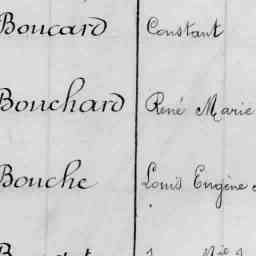 Boucard Constant
Bouchard René Marie
Bouche Louis Eugène